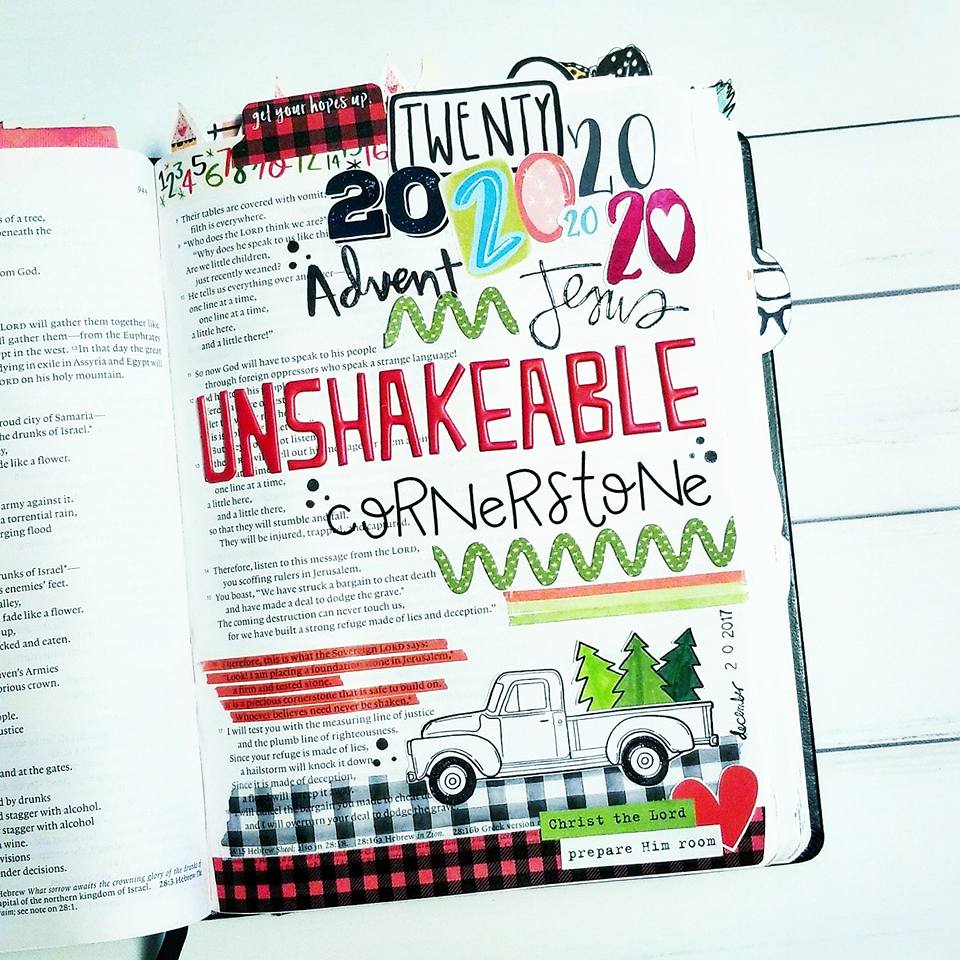 944
s of a tree,
beneath the
om God.
LORD will gather them together like
ll gather them—from the Euphrates
pt in the west. 13In that day the great
dying in exile in Assyria and Egypt will
ORD on his holy mountain.
roud city of Samaria—
he drunks of Israel.*
y,
de like a flower.
army against it.
a torrential rain,
rging flood
runks of Israel*—
s enemies' feet.
alley,
fade like a flower.
up,
cked and eaten.
ven's Armies
orious crown.
ople.
ustice
and at the gates.
d by drunks
d stagger with alcohol.
stagger with alcohol
n wine.
visions
nder decisions.
Hebrew What sorrow awaits the crowning glory of the drunks of
apital of the northern kingdom of Israel. 28:3 Hebrew
see note on 28:1.
get your hopes up.
TWENTY
20
1 2 3 4 5 6 7 8 10 12 14 15 16
20
20
20
20
8 Their tables are covered with vomit
filth is everywhere.
9 "Who does the LORD think we are?
"Why does he speak to us like this
Are we little children,
just recently weaned?
10 He tells us everything over and over—
one line at a time,
one line at a time,
a little here,
and a little there!"
Advent
Jesus
11 So now God will have to speak to his people
through foreign oppressors who speak a strange language!
UNSHAKEABLE
one line at a time,
a little here,
and a little there,
so that they will stumble and fall.
They will be injured, trapped, and captured.
cornerstone
14 Therefore, listen to this message from the LORD,
you scoffing rulers in Jerusalem.
15 You boast, "We have struck a bargain to cheat death
and have made a deal to dodge the grave.*
The coming destruction can never touch us,
for we have built a strong refuge made of lies and deception."
16 Therefore, this is what the Sovereign LORD says:
"Look! I am placing a foundation stone in Jerusalem,*
a firm and tested stone.
It is a precious cornerstone that is safe to build on.
Whoever believes need never be shaken.*
17 I will test you with the measuring line of justice
and the plumb line of righteousness.
Since your refuge is made of lies,
a hailstorm will knock it down.
Since it is made of deception,
a flood will sweep it away.
18 I will cancel the bargain you made to cheat death,
and I will overturn your deal to dodge the grave
28:15 Hebrew Sheol; also in 28:18. 28:16a Hebrew in Zion. 28:16b Greek version
december 20 2017
Christ the Lord
prepare Him room